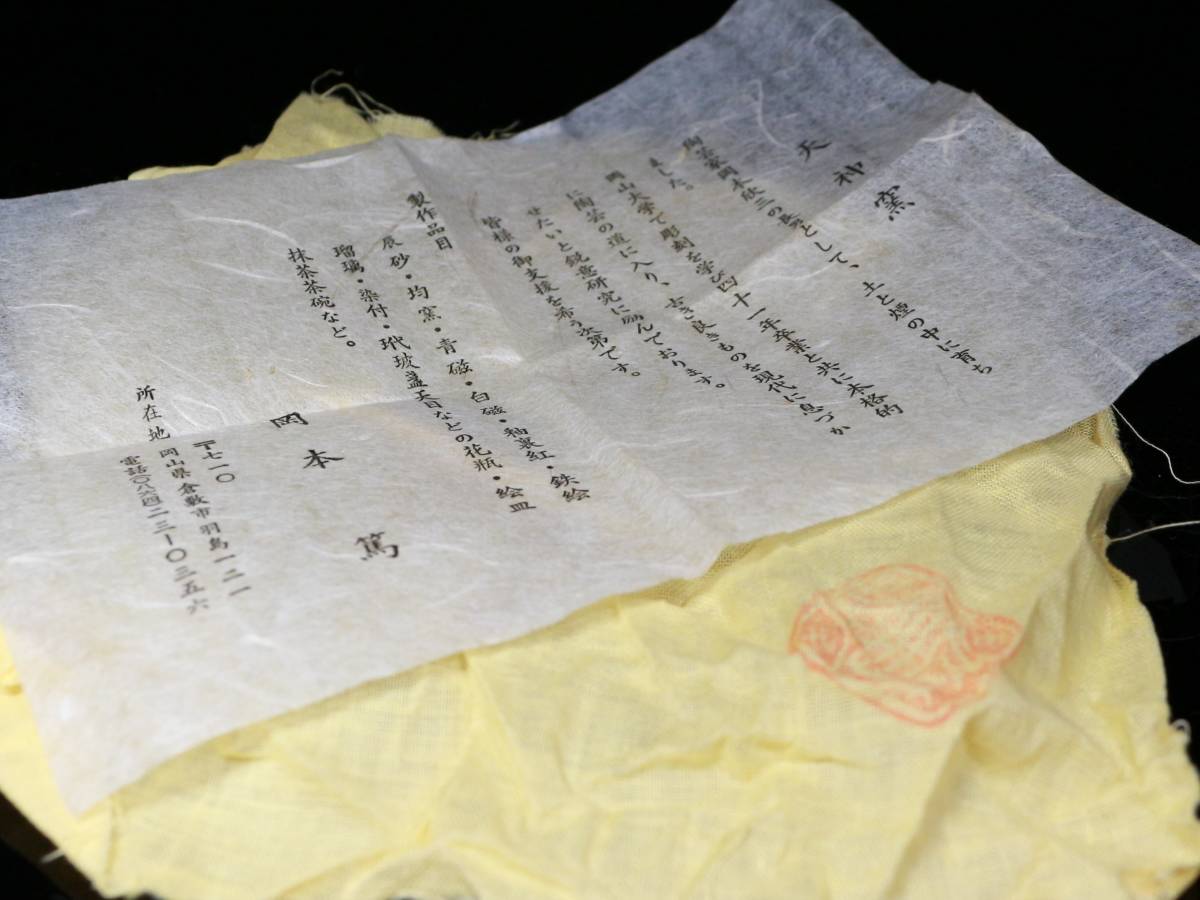 天神窯
陶芸家岡本欣三の長男として、土と煙の中に育ち
ました。
岡山大学で彫刻を学び四十一年卒業と共に本格的
に陶芸の道に入り、古き良きものを現代に息づか
せたいと鋭意研究に励んでおります。
皆様の御支援を希う次第です。
製作品目
辰砂・均窯・青磁・白磁・釉裏紅・鉄絵
瑠璃・染付・玳玻盞天目などの花瓶・絵皿
抹茶茶碗など。
岡本篤
所在地 岡山県倉敷市羽島一二一
〒七一〇
電話〇八六四二三ー〇三五六